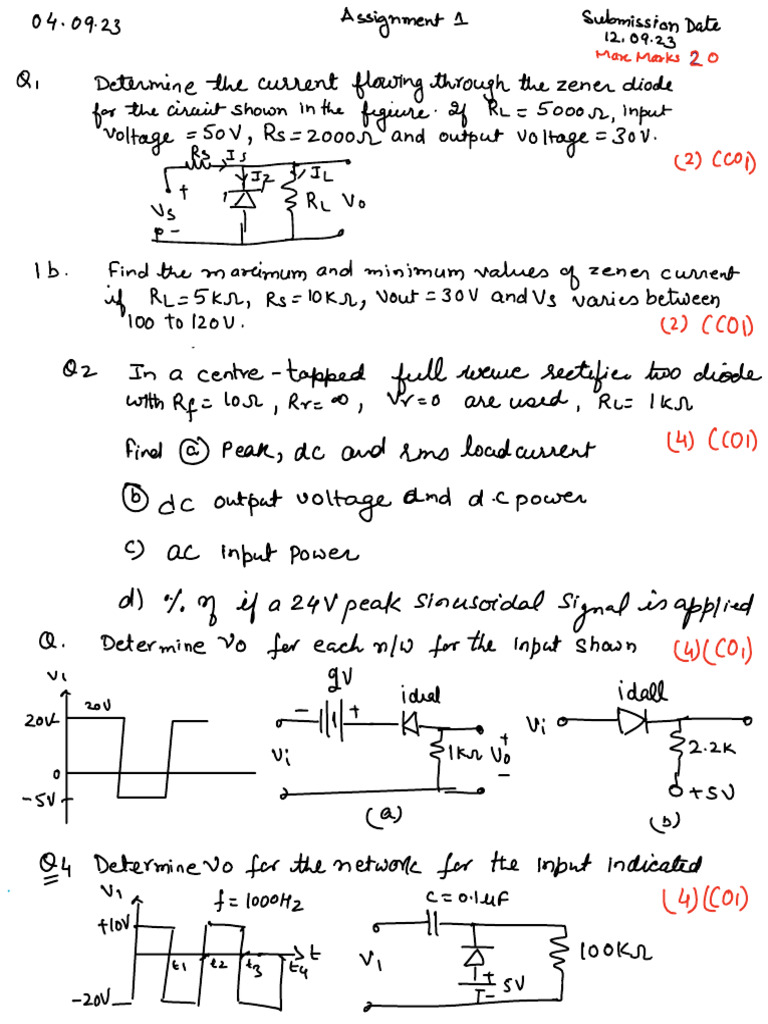 04.09.23 Assignment 1 Submission Date
12.09.23
Max Marks 20
Q1 Determine the current flowing through the zener diode
for the circuit shown in the figiure. If RL = 5000Ω, input
voltage = 50V, Rs = 2000Ω and output voltage = 30V.
(2) (CO1)
Rs Is
IZ IL
+ RL Vo
Vs
-
1b. Find the maximum and minimum values of zener current
if RL = 5KΩ, Rs = 10KΩ, Vout = 30V and Vs varies between
100 to 120V. (2) (CO1)
Q2 In a centre-tapped full wave rectifier two diode
with Rf = 10Ω, Rr = ∞, Vr = 0 are used, RL = 1KΩ
(4) (CO1)
find (a) Peak, dc and rms load current
(b) dc output voltage and d.c power
c) ac input power
d) % η if a 24V peak sinusoidal signal is applied
Q. Determine Vo for each n/w for the input shown (4)(CO1)
Vi 9V
20V - + ideal idall
20V Vi
Vi 1KΩ Vo + - 2.2K
0
-5V +5V
(a) (b)
Q4 Determine Vo for the network for the input indicated
(4)(CO1)
V1 f = 1000Hz C = 0.1μF
+10V
t1 t2 t3 t4 t V1 100KΩ
+ - 5V
-20V